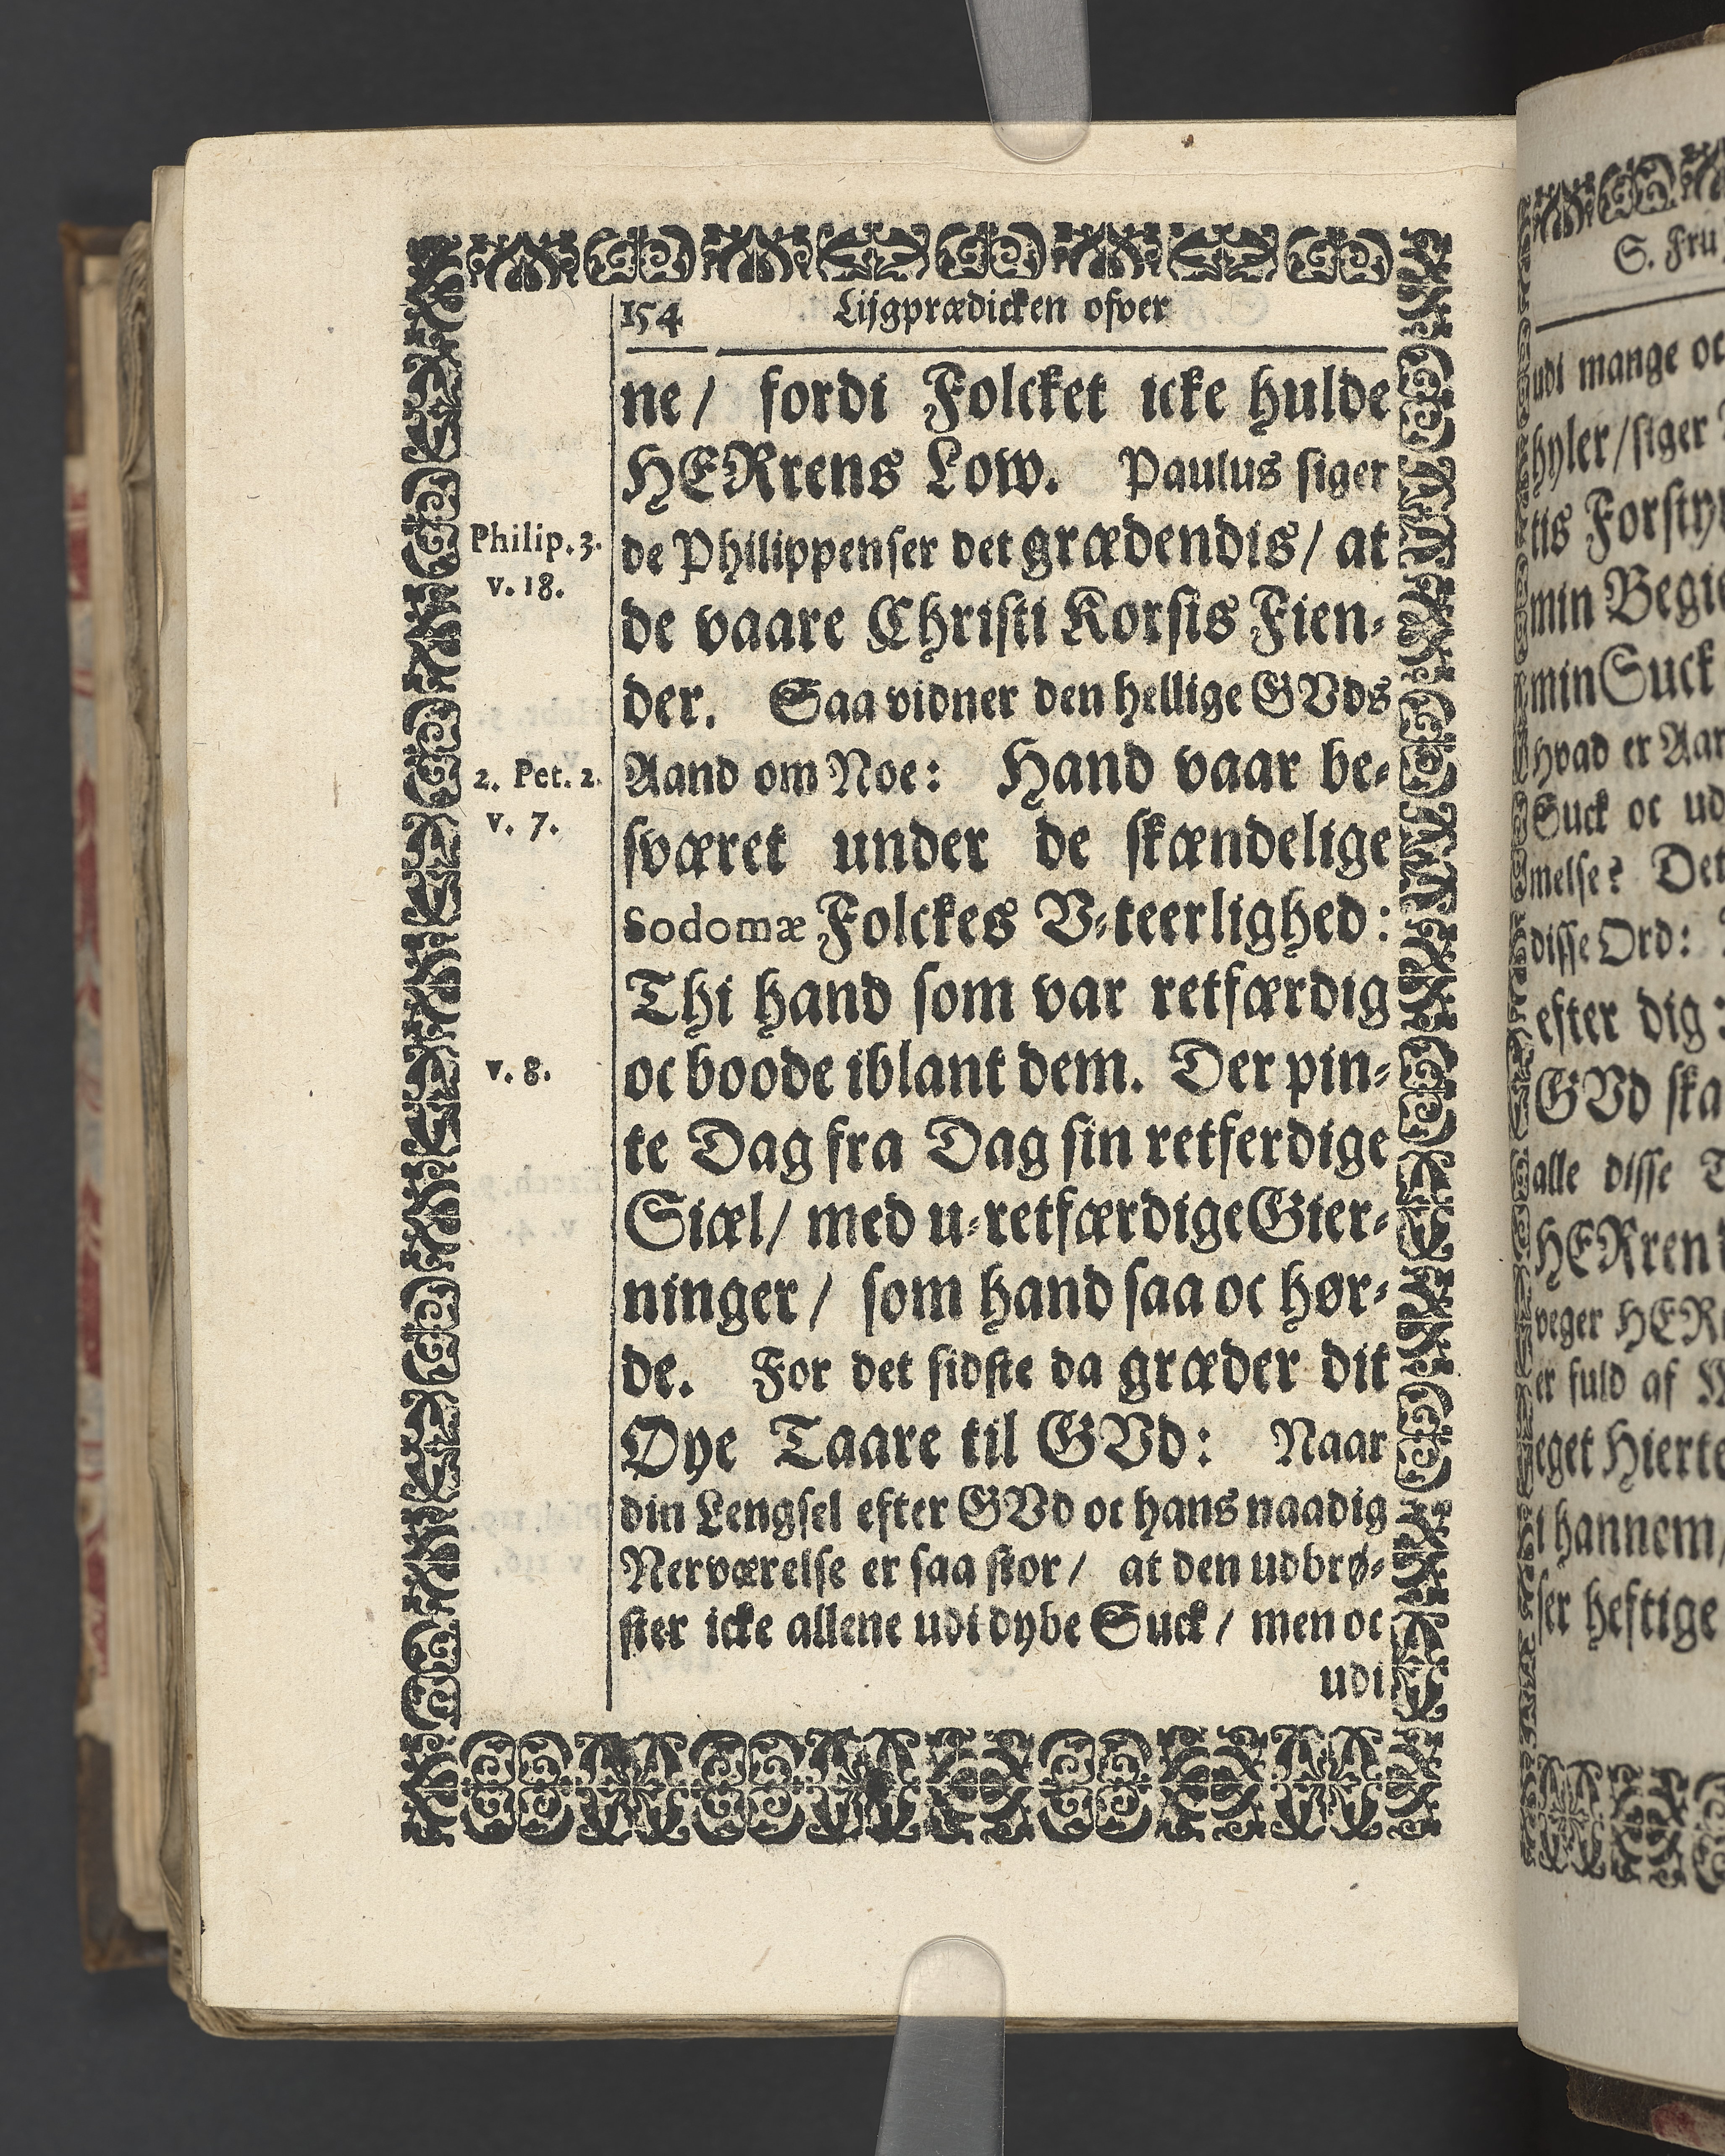 154 Lijgprædicken ofver
ne / fordi Folcket icke hulde
HERrens Low. Paulus siger
Philip. 3.
v. 18.
de Philippenser det grædendis / at
de vaare Christi Korsis Fien-
der. Saa vidner den hellige GVds
2. Pet. 2.
v. 7.
Aand om Noe: Hand vaar be-
sværet under de skændelige
Sodomæ Folckes V-teerlighed:
Thi hand som var retfærdig
v. 8.
oc boode iblant dem. Der pin-
te Dag fra Dag sin retferdige
Siæl / med u-retfærdige Gier-
ninger / som hand saa oc hør-
de. For det sidste da græder dit
Øye Taare til GVd: Naar
din Lengsel efter GVd oc hans naadig
Nerværelse er saa stor / at den udbrø-
ster icke allene udi dybe Suck / men oc
udi
S. Fru
udi mange oc
hyler / siger
tis Forsty
min Begi
min Suck
Hvad er Aar
Suck oc ud
melse? Det
disse Ord:
efter dig:
GVd ska
alle disse
HERren
veger HER
er fuld af
eget Hierte
i hannem /
ser heftige